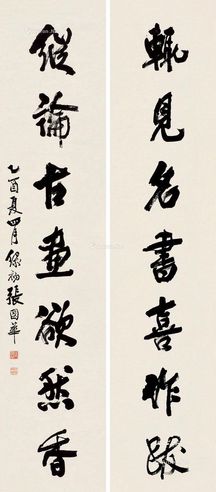 輒見名書喜作跋
縱論古畫欲焚香
乙酉夏四月
張國華